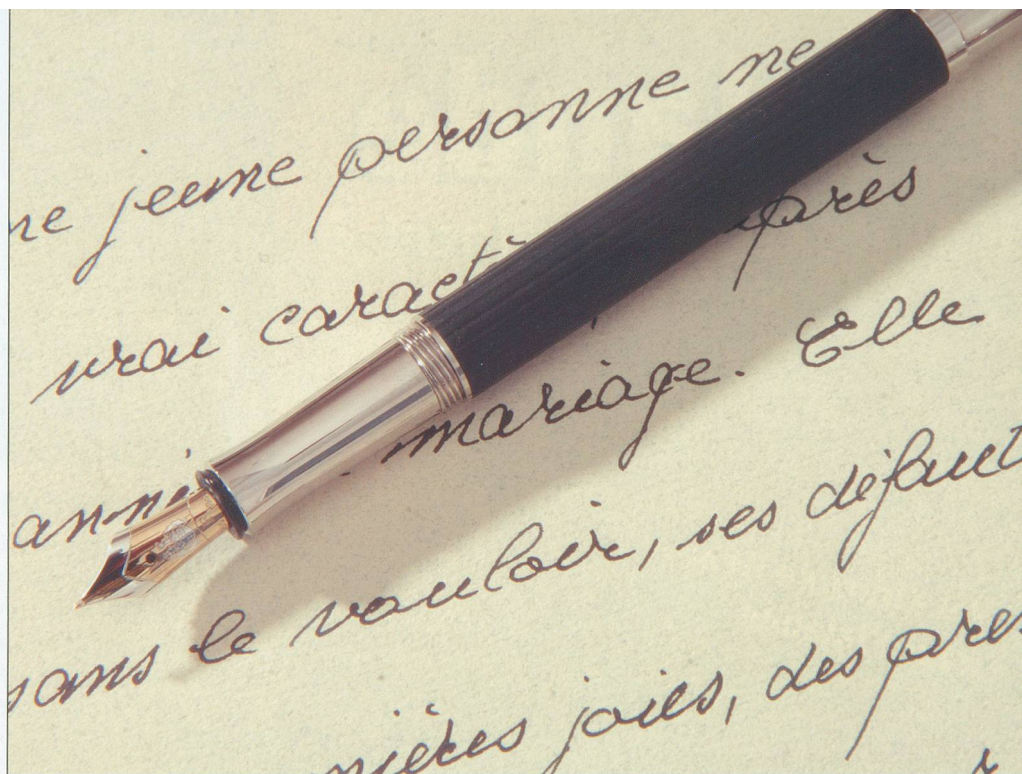 ne jeune personne ne
vrai caract près
anni mariage. Elle
sans le vouloir, ses défaut
nières joies, des pre